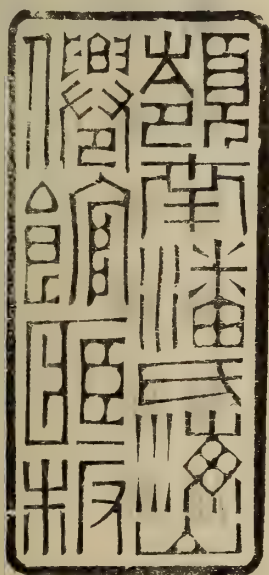 嶺南潘氏海山
僊館藏板